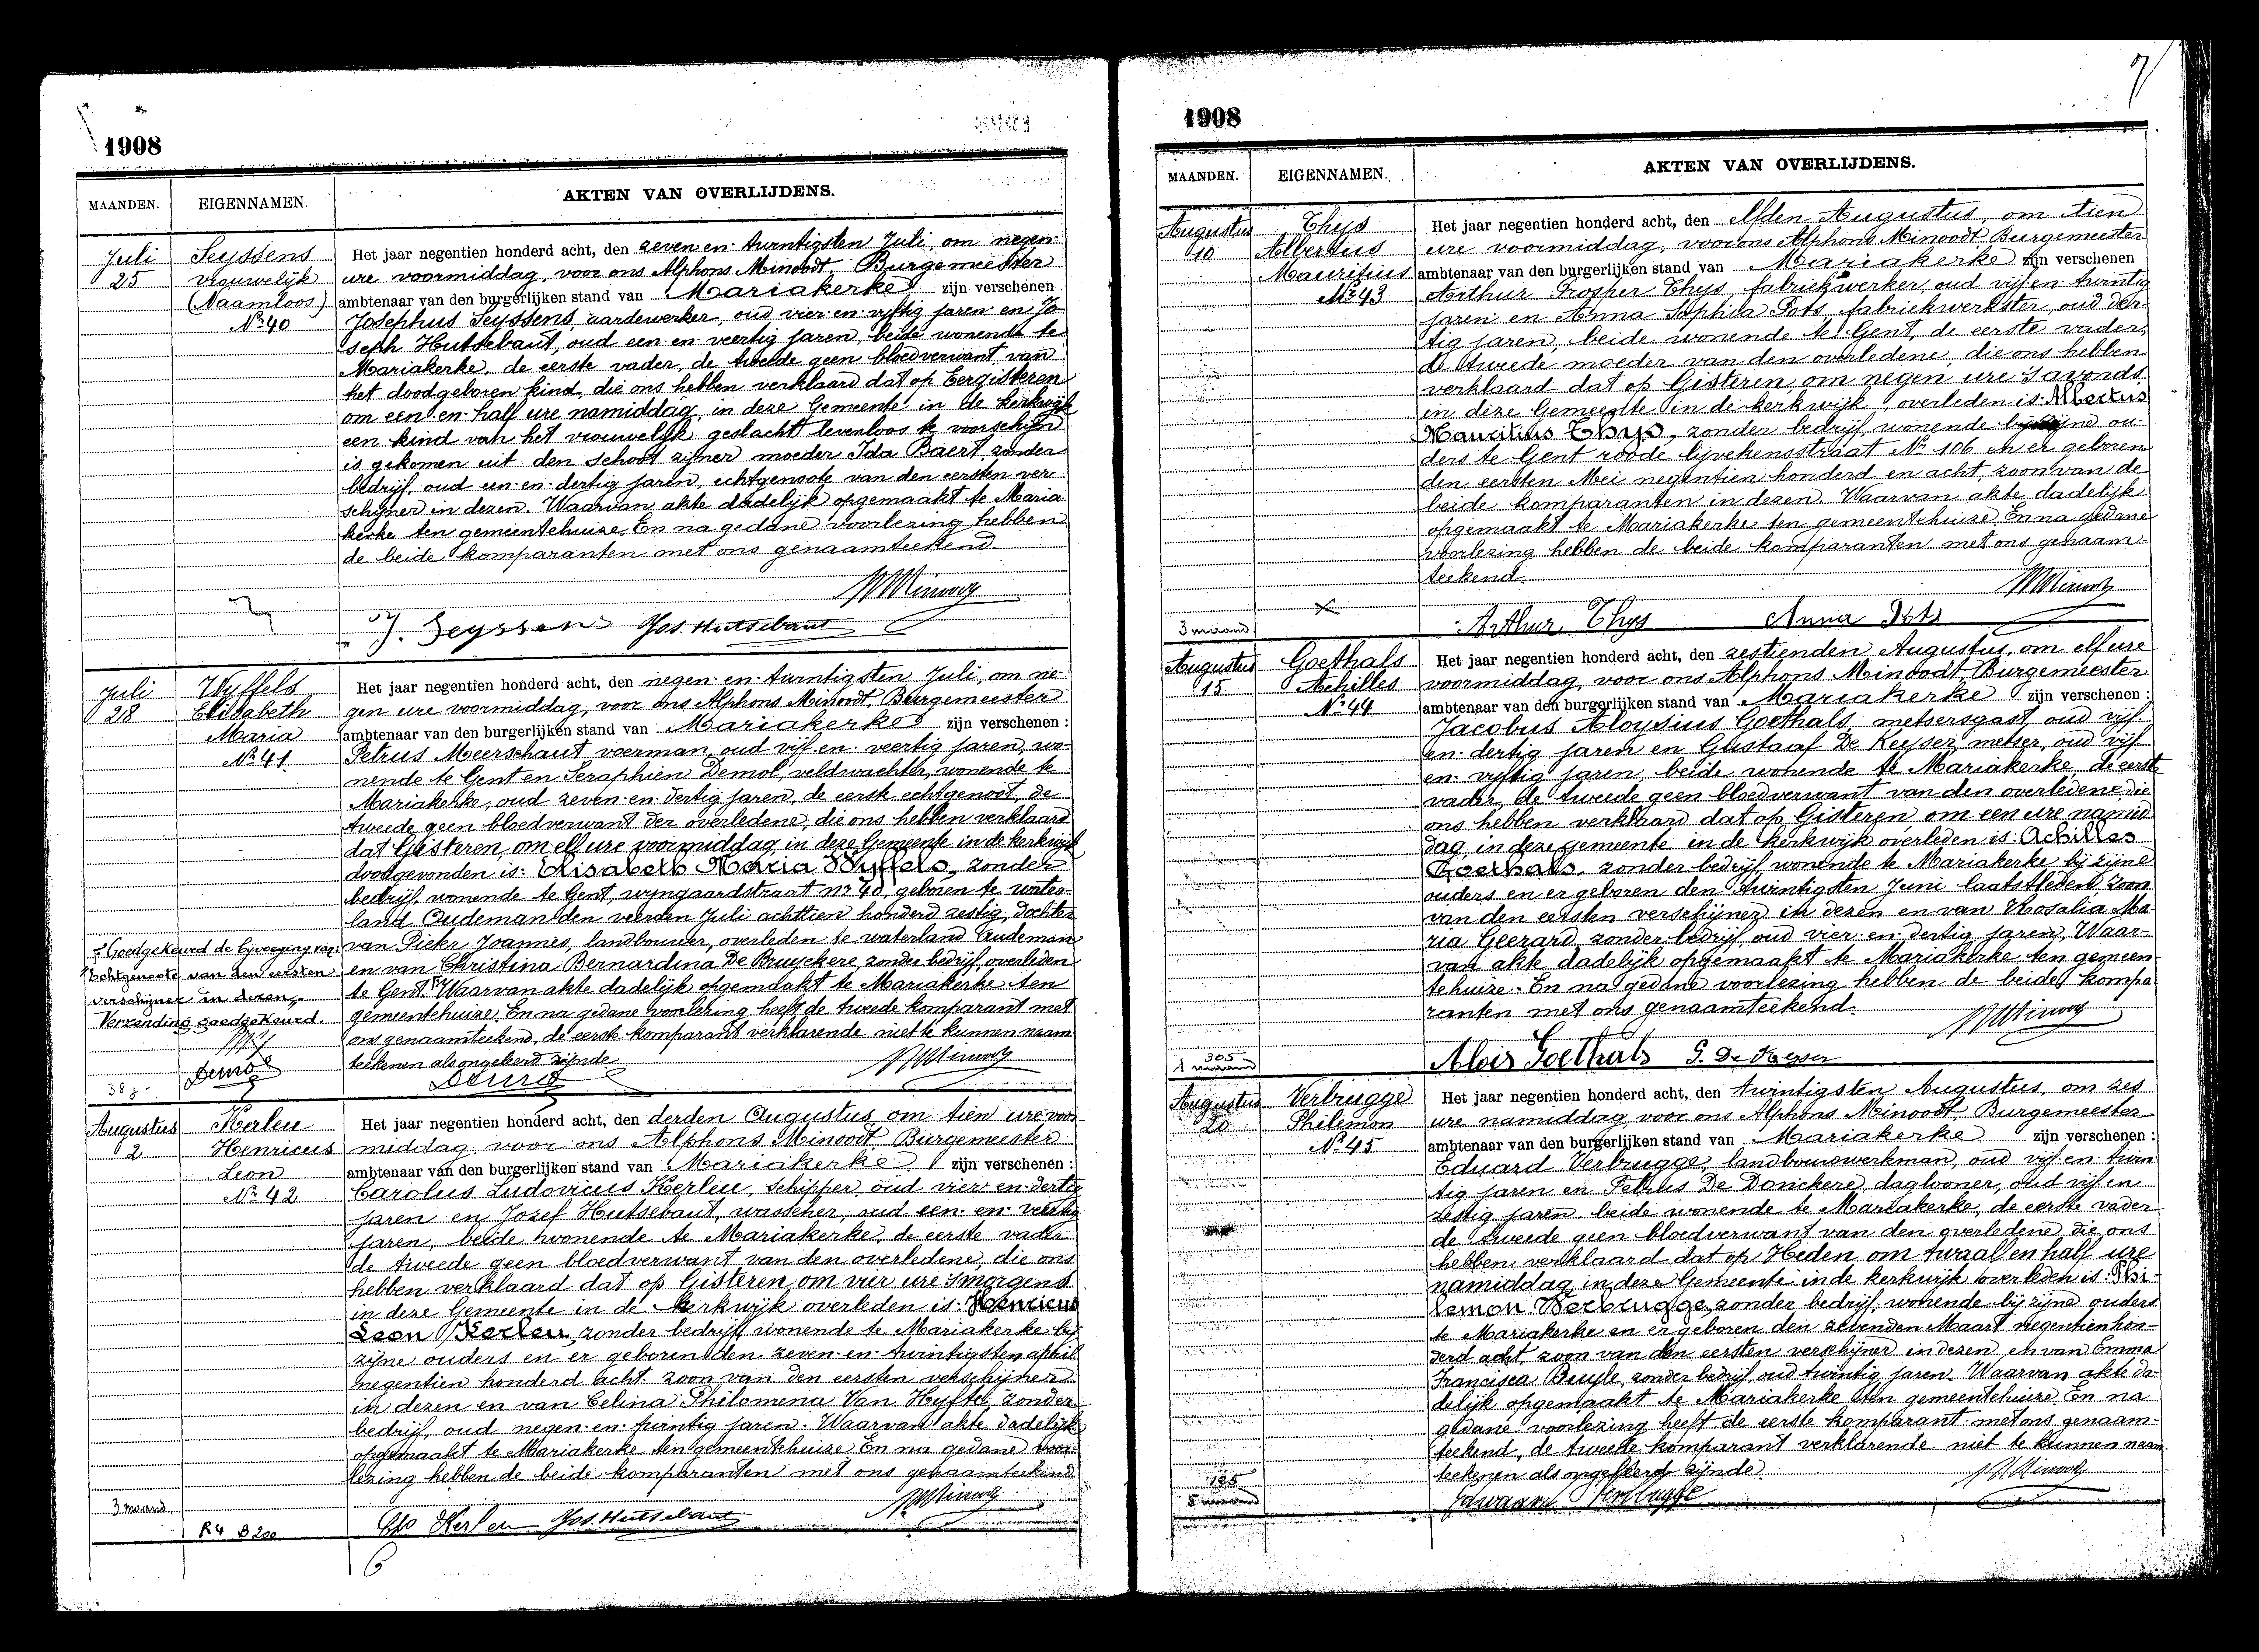 1908
MAANDEN.
EIGENNAMEN.
AKTEN VAN OVERLIJDENS.
Juli
25
Seyssens
vrouwelijk
(Naamloos)
Nr 40
Het jaar negentien honderd acht, den zeven en twintigsten Juli, om negen
ure voormiddag, voor ons Alphons Minoodt, Burgemeester
ambtenaar van den burgerlijken stand van Mariakerke zijn verschenen
Josephus Seyssens, aardewerker, oud vier en vijftig jaren en Jo-
seph Hutsebaut, oud een en veertig jaren, beide wonende te
Mariakerke, de eerste vader, de tweede geen bloedverwant van
het doodgeboren kind, die ons hebben verklaard dat op Eergisteren
om een en half ure namiddag, in deze Gemeente in de kerkwijk
een kind van het vrouwelijk geslacht levenloos te voorschijn
is gekomen uit den schoot zijner moeder Ida Baert, zonder
bedrijf, oud een en dertig jaren, echtgenoote van den eersten ver-
schijner in dezen. Waarvan akte dadelijk opgemaakt te Maria-
kerke ten gemeentehuize. En na gedane voorlezing hebben
de beide komparanten met ons genaamteekend
AMinoodt
J. Seyssens Jos. Hutsebaut
Juli
28
Wyffels
Elisabeth
Maria
Nr 41
Het jaar negentien honderd acht, den negen en twintigsten Juli, om ne-
gen ure voormiddag, voor ons Alphons Minoodt, Burgemeester
ambtenaar van den burgerlijken stand van Mariakerke zijn verschenen :
Petrus Meerschaut voerman, oud vijf en veertig jaren, wo-
nende te Gent en Seraphien Demol, veldwachter, wonende te
Mariakerke, oud zeven en dertig jaren, de eerste echtgenoot, de
tweede geen bloedverwant der overledene, die ons hebben verklaard
dat Gisteren, om elf ure voormiddag in deze Gemeente in de kerkwijk
doodgevonden is: Elisabeth Maria Wyffels, zonder
bedrijf, wonende te Gent, wyngaardstraat nr 40, geboren te water-
land Oudeman den veerden Juli achttien honderd zestig, dochter
van Pieter Joannes, landbouwer, overleden te waterland Oudeman
en van Christina Bernardina De Bruyckere, zonder bedrijf, overleden
te Gent. Waarvan akte dadelijk opgemaakt te Mariakerke ten
gemeentehuize. En na gedane voorlezing heeft de tweede komparant met
ons genaamteekend, de eerste komparant verklarende niet te kunnen naam-
teekenen als ongeleerd zijnde
Goedgekeurd de bijvoeging van:
echtgenoote van den eersten
verschijner in dezen,
Verzending goedgekeurd.
Demol
38 j.
Demol AMinoodt
Augustus
2
Kerleu
Henricus
Leon
Nr 42
Het jaar negentien honderd acht, den derden Augustus om tien ure voor-
middag voor ons Alphons Minoodt, Burgemeester
ambtenaar van den burgerlijken stand van Mariakerke zijn verschenen :
Carolus Ludovicus Kerleu, schipper, oud vier en dertig
jaren en Jozef Hutsebaut, wasscher, oud een en veertig
jaren, beide wonende te Mariakerke, de eerste vader
de tweede geen bloedverwant van den overledene, die ons
hebben verklaard dat op Gisteren, om vier ure smorgens
in deze Gemeente in de kerkwijk overleden is: Henricus
Leon Kerleu, zonder bedrijf, wonende te Mariakerke bij
zijne ouders en er geboren den zeven en twintigsten april
negentien honderd acht zoon van den eersten verschijner
in dezen en van Celina Philomena Van Hyfte, zonder
bedrijf, oud negen en twintig jaren. Waarvan akte dadelijk
opgemaakt te Mariakerke ten gemeentehuize. En na gedane voor-
lezing hebben de beide komparanten met ons genaamteekend
AMinoodt
3 maand.
R4 B 200
Kerleu Jos. Hutsebaut
6
7
1908
MAANDEN.
EIGENNAMEN.
AKTEN VAN OVERLIJDENS.
Augustus
10
Thys
Albertus
Mauritius
Nr 43
Het jaar negentien honderd acht, den elfden Augustus, om tien
ure voormiddag, voor ons Alphons Minoodt, Burgemeester
ambtenaar van den burgerlijken stand van Mariakerke zijn verschenen
Arthur Prosper Thys, fabriekwerker, oud vijf en twintig
jaren en Anna Sophia Pots, fabriekwerkster, oud der-
tig jaren, beide wonende te Gent, de eerste vader,
de tweede moeder van den overledene, die ons hebben
verklaard dat op Gisteren om negen ure savonds,
in deze Gemeente in de kerkwijk, overleden is: Albertus
Mauritius Thys, zonder bedrijf, wonende bij zijne ou-
ders te Gent roode lijvekensstraat Nr 106 en er geboren
den eersten Mei negentien honderd en acht, zoon van de
beide komparanten in dezen. Waarvan akte dadelijk
opgemaakt te Mariakerke ten gemeentehuize. En na gedane
voorlezing hebben de beide komparanten met ons genaam-
teekend.
AMinoodt
3 maand
Arthur Thys Anna Pots
Augustus
15
Goethals
Achilles
Nr 44
Het jaar negentien honderd acht, den zestienden Augustus, om elf ure
voormiddag, voor ons Alphons Minoodt, Burgemeester
ambtenaar van den burgerlijken stand van Mariakerke zijn verschenen :
Jacobus Aloysius Goethals, metsersgast, oud vijf
en dertig jaren en Gustaaf De Keyser, metser, oud vijf
en vijftig jaren, beide wonende te Mariakerke, de eerste
vader, de tweede geen bloedverwant van den overledene, die
ons hebben verklaard dat op Gisteren om een ure namid-
dag, in deze gemeente in de kerkwijk overleden is: Achilles
Goethals, zonder bedrijf, wonende te Mariakerke bij zijne
ouders en er geboren den twintigsten Juni laatstleden zoon
van den eersten verschijner in dezen en van Rosalia Ma-
ria Geerard zonder bedrijf, oud vier en dertig jaren, Waar-
van akte dadelijk opgemaakt te Mariakerke ten gemeen-
tehuize. En na gedane voorlezing hebben de beide kompa-
ranten met ons genaamteekend.
AMinoodt
305
1 maand
Alois Goethals G. De Keyser
Augustus
20
Verbrugge
Philemon
Nr 45
Het jaar negentien honderd acht, den twintigsten Augustus, om zes
ure namiddag, voor ons Alphons Minoodt, Burgemeester
ambtenaar van den burgerlijken stand van Mariakerke zijn verschenen :
Eduard Verbrugge, landbouwwerkman, oud vijf en twin-
tig jaren en Petrus De Donckere, daglooner, oud vijf en
zestig jaren, beide wonende te Mariakerke, de eerste vader
de tweede geen bloedverwant van den overledene, die ons
hebben verklaard dat op Heden om twaal en half ure
namiddag in deze Gemeente in de kerkwijk overleden is: Phi-
lemon Verbrugge, zonder bedrijf, wonende bij zijne ouders
te Mariakerke en er geboren den zevenden Maart negentien hon-
derd acht, zoon van den eersten verschijner in dezen en van Emma
Francisca Buyle, zonder bedrijf, oud twintig jaren. Waarvan akte da-
delijk opgemaakt te Mariakerke ten gemeentehuize. En na
gedane voorlezing heeft de eerste komparant met ons genaam-
teekend, de tweede komparant verklarende niet te kunnen naam-
teekenen als ongeleerd zijnde
AMinoodt
125
5 maand
Eduaard Verbrugge